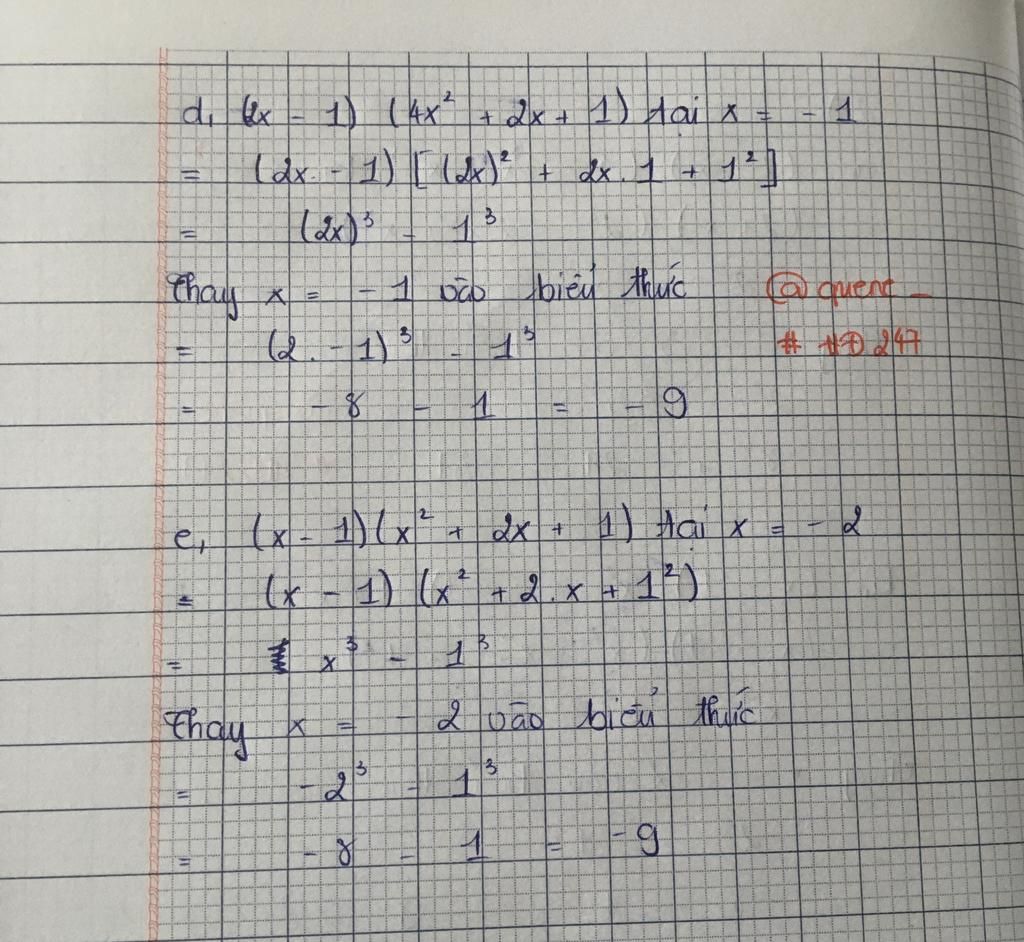 d, (2x - 1) (4x² + 2x + 1) tại x = - 1
= (2x - 1) [(2x)² + 2x . 1 + 1²]
= (2x)³ - 1³
Thay x = - 1 vào biểu thức
@quenc_
= (2 . - 1)³ - 1³
# HĐ 247
= - 8 - 1 = - 9
e, (x - 1)(x² + 2x + 1) tại x = - 2
= (x - 1) (x² + 2 . x + 1²)
= x³ - 1³
Thay x = - 2 vào biểu thức
= - 2³ - 1³
= - 8 - 1 = - 9